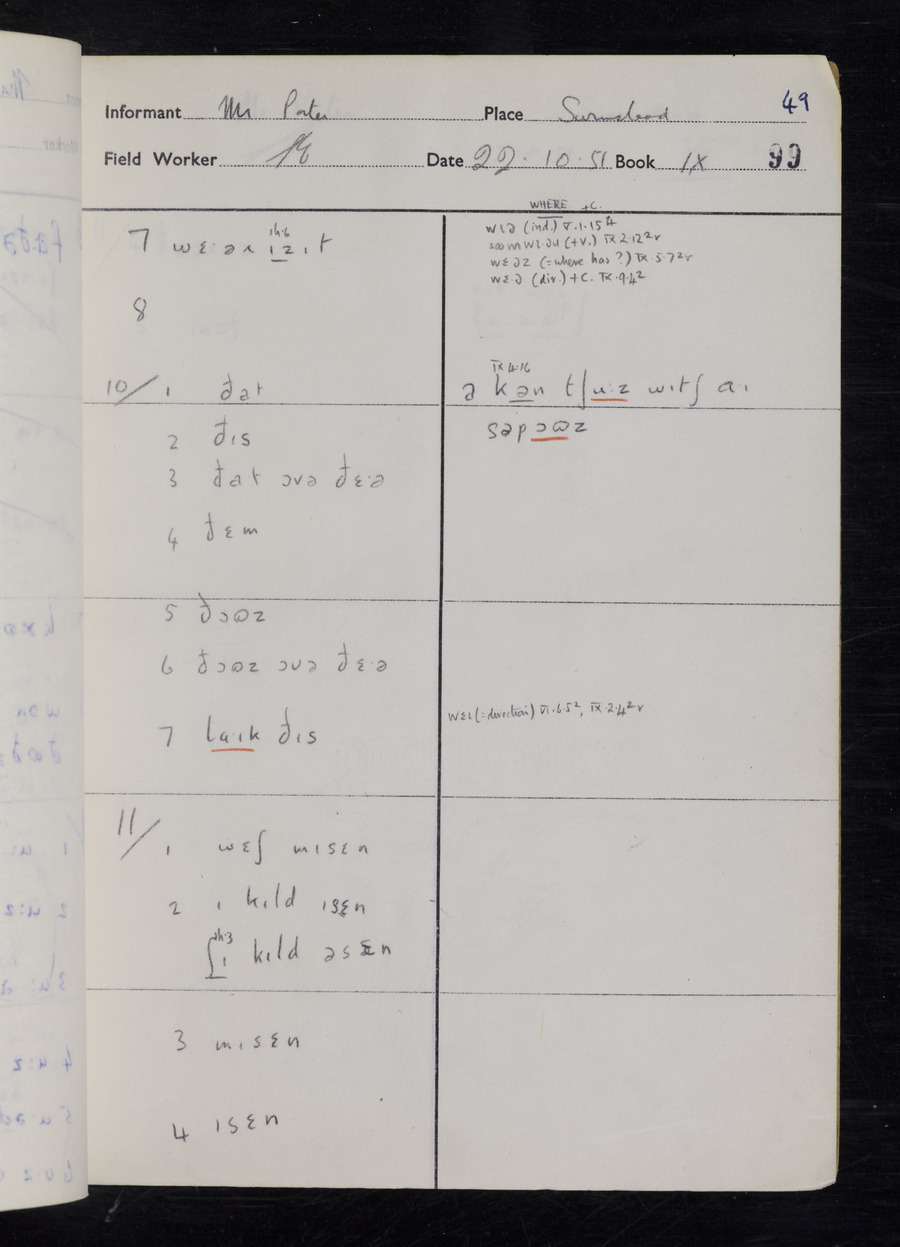 49
Informant Mr Porter Place Swinstead
Field Worker Date 22. 10. 51 Book IX 99
WHERE +C.
7 wɛəɹ ɪz ɪt
wɪə (ind.) V.1.15
wɪəɹ (+V.) IX.2.12²r
wɛəz (= where has?) IX.5.7²r
wɛ·ə (div.) +C. IX.9.4²
8
IX 4.16
10/ 1 ðat
ə kən tʃu:z wɪtʃ a·ɪ
səpɔɷz
2 ðɪs
3 ðat ɔvə ðɛ·ə
4 ðɛm
5 ðɔɷz
6 ðɔɷz ɔvə ðɛ·ə
wɛɪ (= direction) VI.6.5², IX.2.4²r
7 la·ɪk ðɪs
11/ 1 wɛʃ mɪsɛn
2 ɪ kɪld ɪsɛn
ʃɪ kɪld əsɛn
3 mɪsɛn
4 ɪsɛn